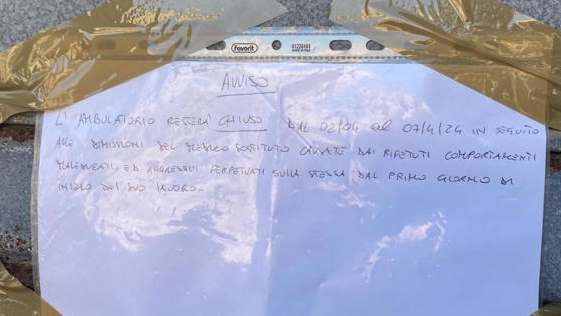 Favorit
AVVISO
L'AMBULATORIO RESTERÀ CHIUSO DAL 02/04 al 07/4/24 IN SEGUITO
ALLE DIMISSIONI DEL MEDICO SOSTITUTO CAUSATE DAI RIPETUTI COMPORTAMENTI
MALEDUCATI ED AGGRESSIVI PERPETUATI SULLA STESSA DAL PRIMO GIORNO DI
INIZIO DEL SUO LAVORO.